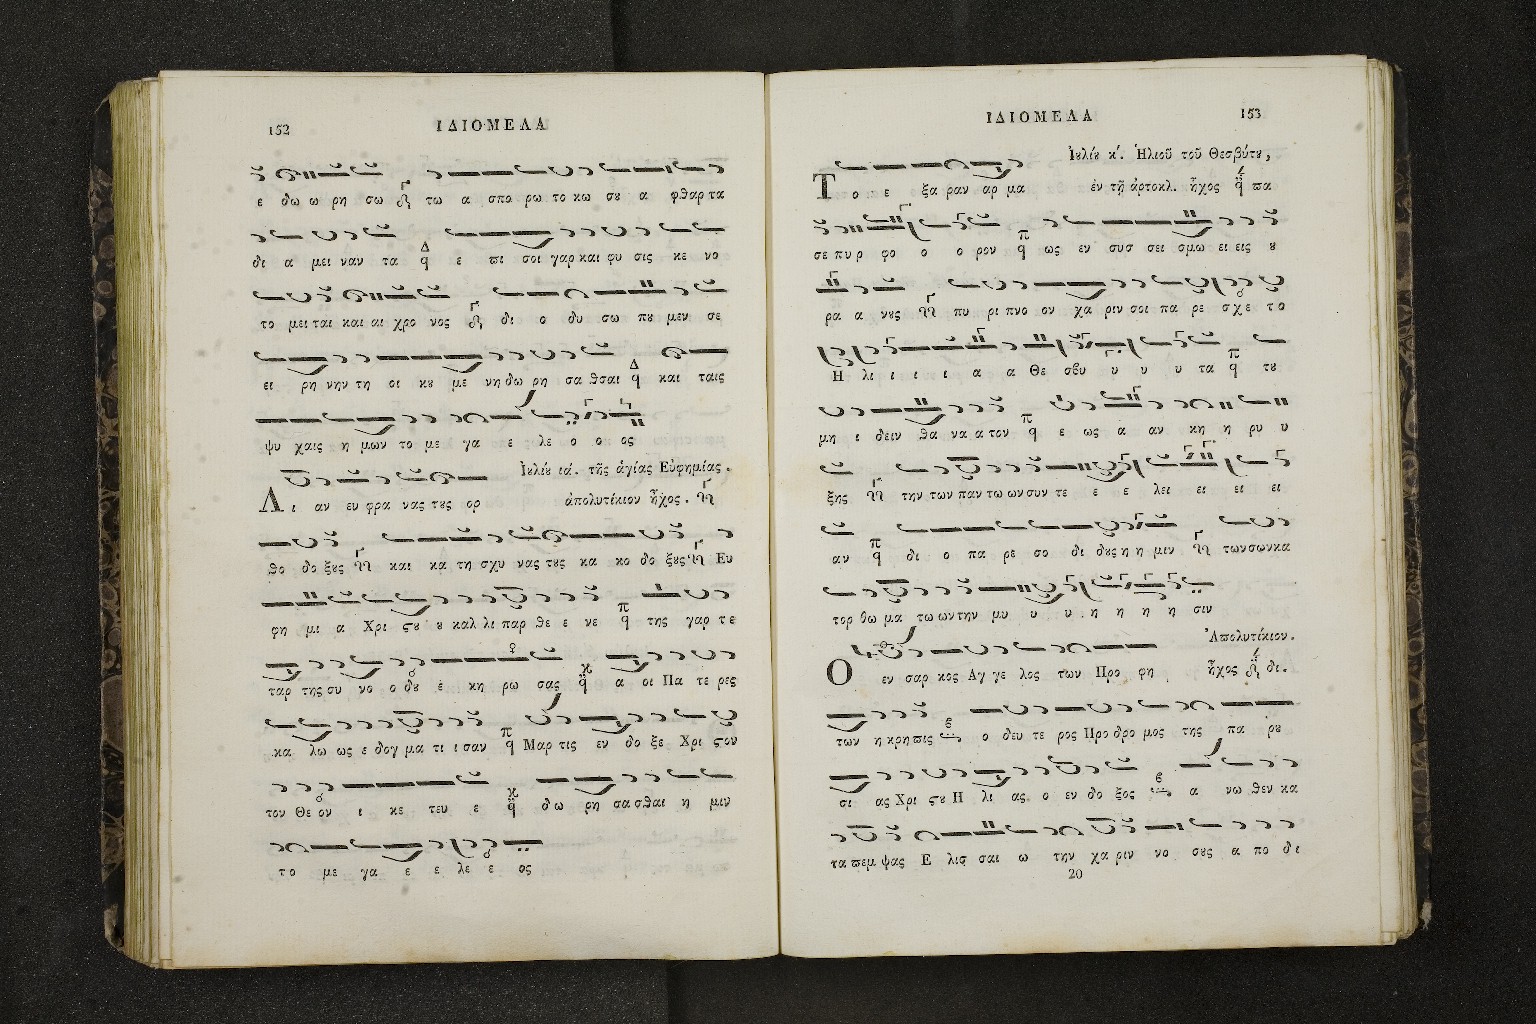 152
ΙΔΙΟΜΕΛΑ
ε δω ω ρη σω τω α σπο ρω το κω σȣ α φθαρ τα
δι α μει ναν τα ε πι σοι γαρ και φυ σις κε νο
το μει ται και αι χρο νος δι ο δυ σω πȣ μεν σε
ει ρη νην τη οι κȣ με νη δω ρη σα θσαι και ταις
ψυ χαις η μων το με γα ε λε ο ο ος
Ἰȣλίȣ ιά. τῆς ἁγίας Εὐφημίας.
Λ ι αν ευ φρα νας τȣς ορ
ἀπολυτίκιον ἦχος.
θο δο ξȣς και κα τη σχυ νας τȣς κα κο δο ξȣς Ευ
φη μι α Χρι ϛȣ ȣ καλ λι παρ θε ε νε της γαρ τε
ταρ της συ νο ο δȣ ἐ κη ρω σας α οι Πα τε ρες
κα λω ως ε δογ μα τι ι σαν Μαρ τις εν δο ξε Χρι ϛον
τον Θε ον ι κε τευ ε δω ρη σα σθαι η μιν
το με γα ε ε λε ε ος
ΙΔΙΟΜΕΛΑ
153
Ἰȣλίȣ κ΄. Ἡλιοῦ τοῦ Θεσβίτȣ,
Τ ο ε ξα ραν αρ μα
ἐν τῇ ἀρτοκλ. ἦχος πα
σε πυ ρ φο ο ο ρον ως εν συσ σει σμω ει εις ȣ
ρα α νȣς πυ ρι πνο ον χα ριν σοι πα ρε σχε το
Η λι ι ι ι α α Θε σβυ υ υ υ τα τȣ
μη ι δειν θα να α τον ε ως α αν κη η ρυ υ
ξης την των παν τω ων συν τε ε ε λει ει ει ει
αν δι ο πα ρε σο δι δȣς η η μιν των σων κα
τορ θω μα τω ων την μυ υ υ η η η η σιν
Ἀπολυτίκιον.
Ο εν σαρ κος Αγ γε λος των Προ φη
ἦχος δι.
των η κρηπις ο δευ τε ρος Προ δρο μος της πα ρȣ
σι ας Χρι ϛȣ Η λι ας ο εν δο ξος α νω θεν κα
τα πεμ ψας Ε λισ σαι ω την χα ριν νο σȣς α πο δι
20